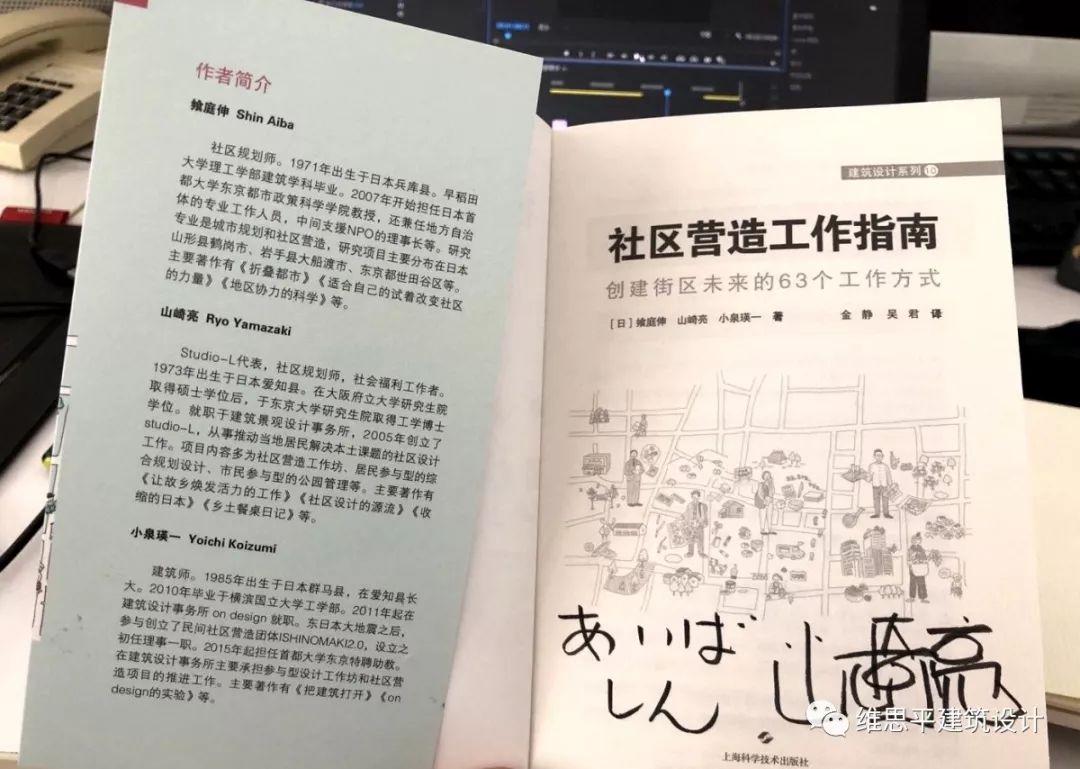 作者简介
飨庭伸 Shin Aiba
社区规划师。1971年出生于日本兵库县。早稻田
大学理工学部建筑学科毕业。2007年开始担任日本首
都大学东京都市政策科学学院教授，还兼任地方自治
体的专业工作人员，中间支援NPO的理事长等。研究
专业是城市规划和社区营造，研究项目主要分布在日本
山形县鹤岗市、岩手县大船渡市、东京都世田谷区等。
主要著作有《折叠都市》《适合自己的试着改变社区
的力量》《地区协力的科学》等。
山崎亮 Ryo Yamazaki
Studio-L代表，社区规划师，社会福利工作者。
1973年出生于日本爱知县。在大阪府立大学研究生院
取得硕士学位后，于东京大学研究生院取得工学博士
学位。就职于建筑景观设计事务所，2005年创立了
studio-L，从事推动当地居民解决本土课题的社区设计
工作。项目内容多为社区营造工作坊、居民参与型的综
合规划设计、市民参与型的公园管理等。主要著作有
《让故乡焕发活力的工作》《社区设计的源流》《收
缩的日本》《乡土餐桌日记》等。
小泉瑛一 Yoichi Koizumi
建筑师。1985年出生于日本群马县，在爱知县长
大。2010年毕业于横滨国立大学工学部。2011年起在
建筑设计事务所 on design 就职。东日本大地震之后，
参与创立了民间社区营造团体ISHINOMAKI2.0，设立之
初任理事一职。2015年起担任首都大学东京特聘助教。
在建筑设计事务所主要承担参与型设计工作坊和社区营
造项目的推进工作。主要著作有《把建筑打开》《on
design的实验》等。
建筑设计系列10
社区营造工作指南
创建街区未来的63个工作方式
[日]飨庭伸 山崎亮 小泉瑛一 著 金静 吴君 译
あいば
しん
山崎亮
上海科学技术出版社
维思平建筑设计